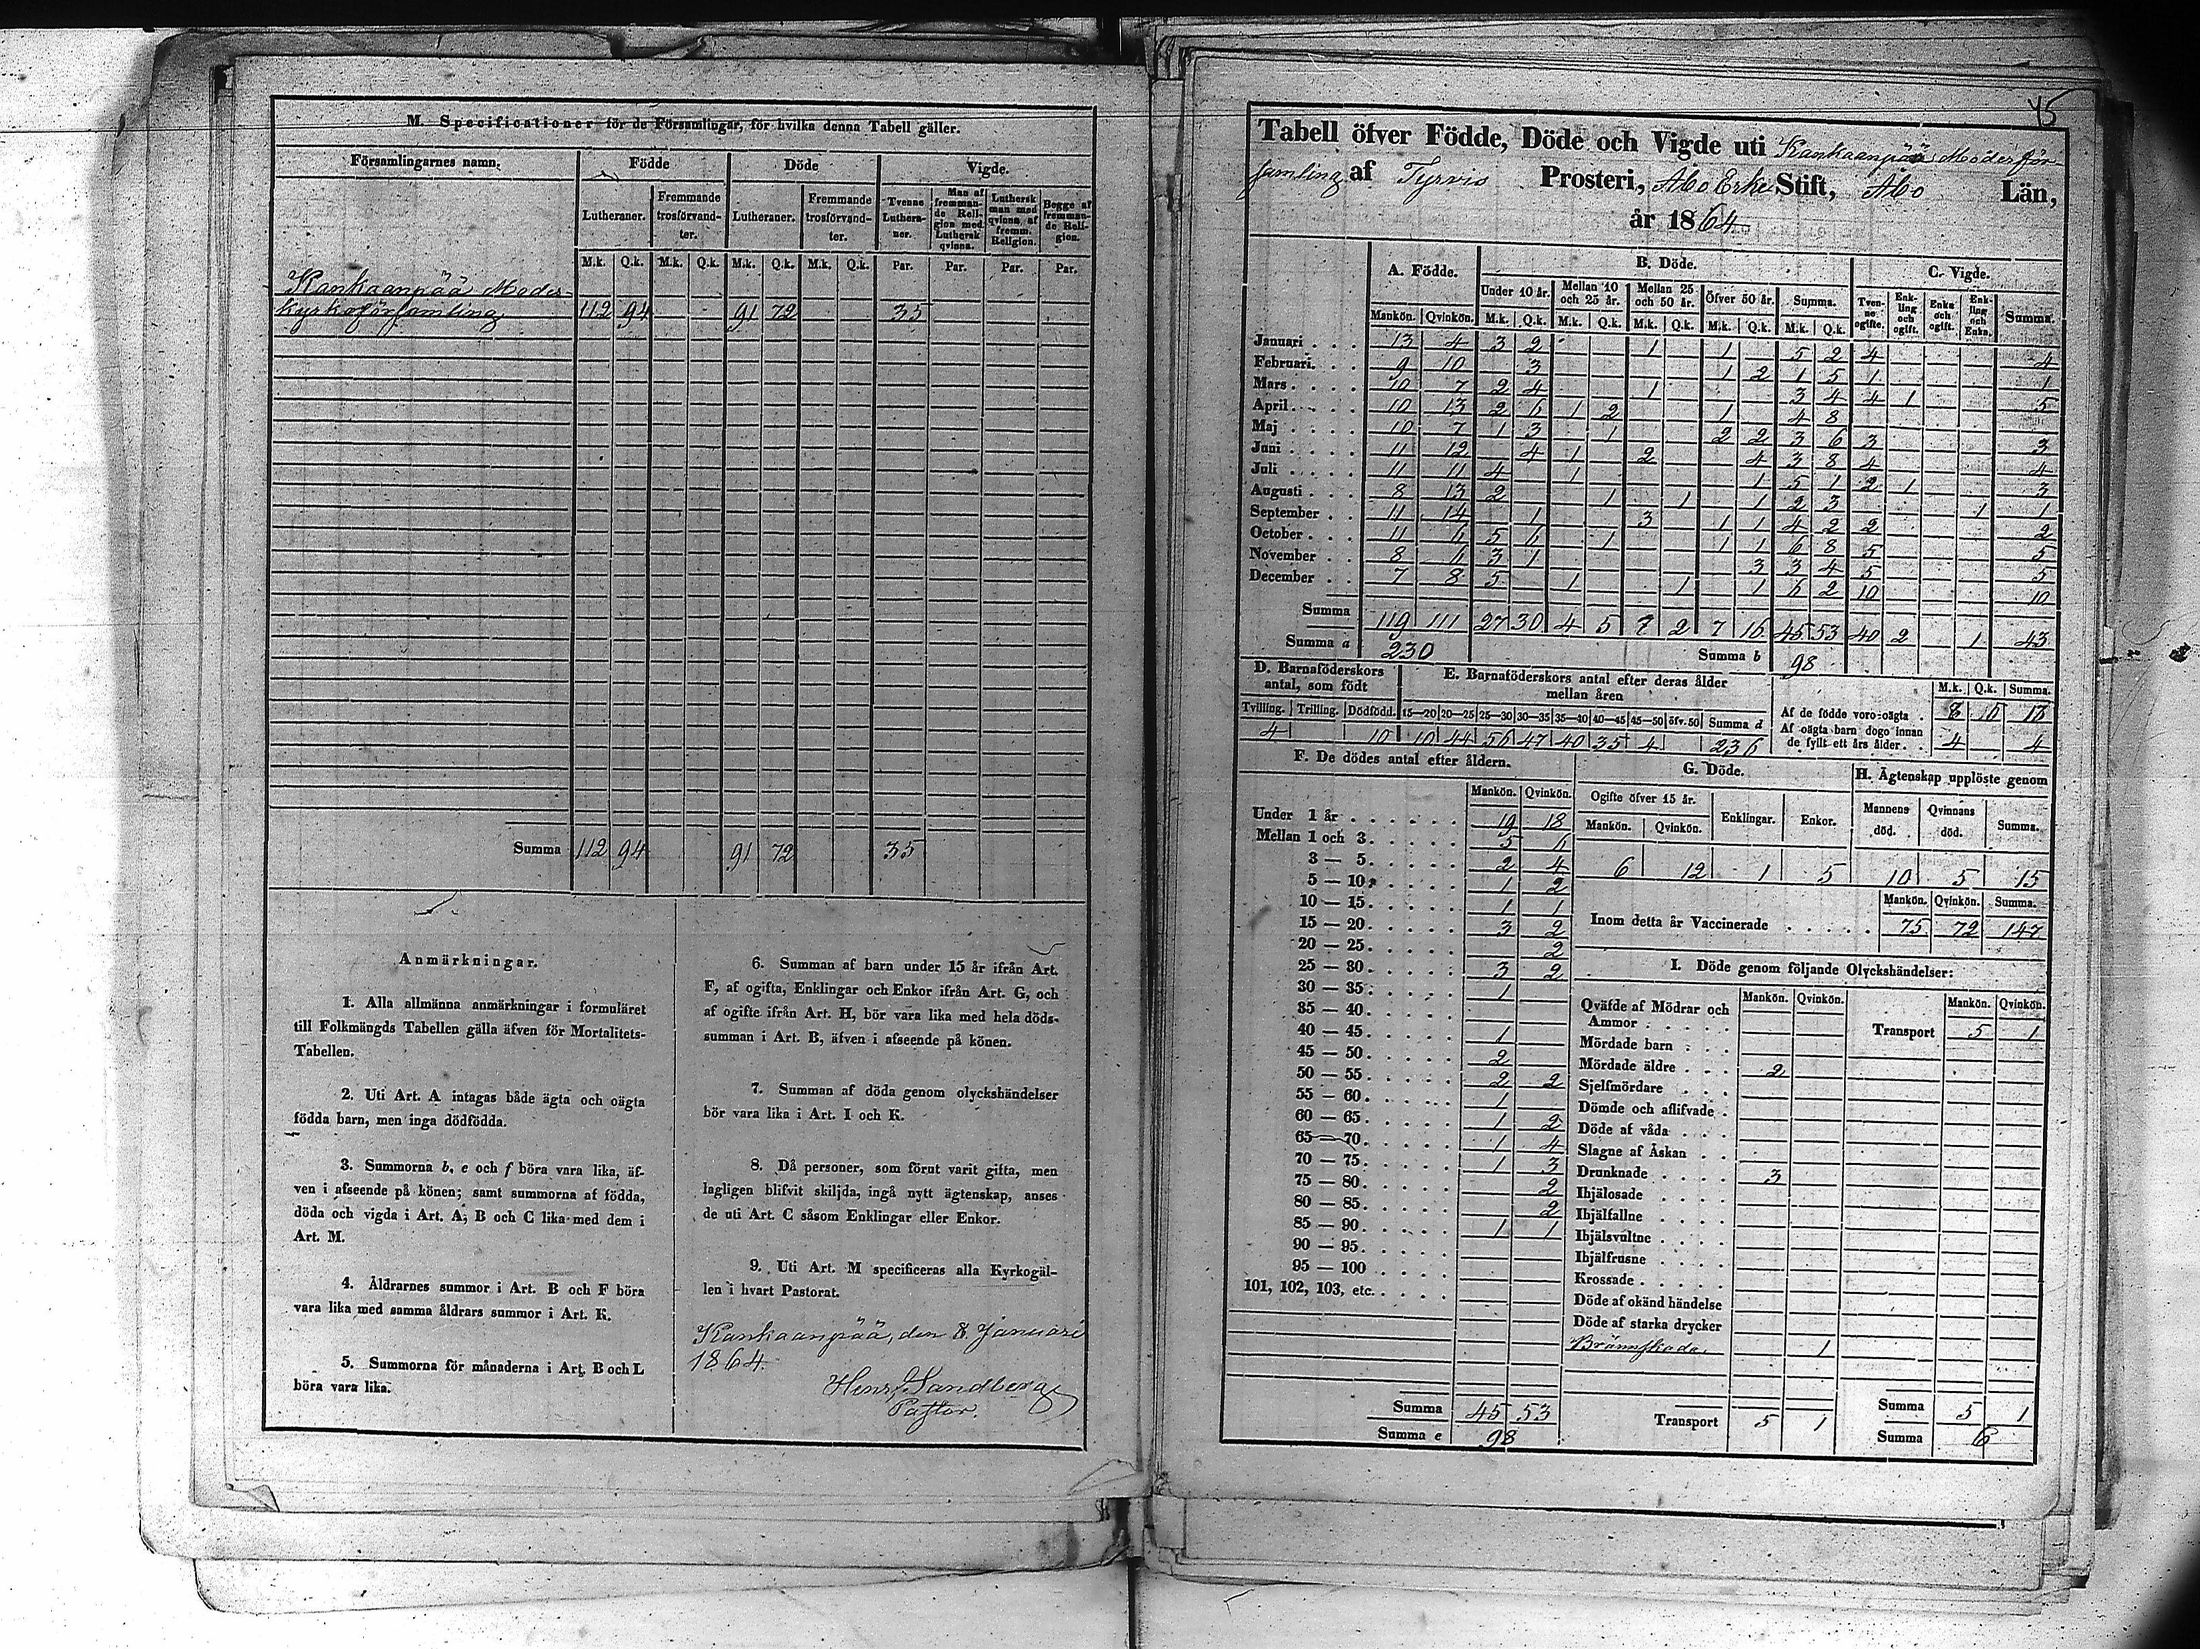 M. Specificationer för de Församlingar, för hvilka denna Tabell gäller.
Församlingarnes namn. Födde Döde Vigde.
Lutheraner. Fremmande trosförvandter. Lutheraner. Fremmande trosförvandter. Tvenne Lutheraner. Man af fremmande Religion med Luthersk qvinna. Luthersk man med qvinna af fremm. Religion. Begge af fremmande Religion.
M.k. Q.k. M.k. Q.k. M.k. Q.k. M.k. Q.k. Par. Par. Par. Par.
Kankaanpää Moder-
kyrkoförsamling 112 94 91 72 35
Summa 112 94 91 72 35
Anmärkningar.
1. Alla allmänna anmärkningar i formuläret
till Folkmängds Tabellen gälla äfven för Mortalitets-
Tabellen.
2. Uti Art. A intagas både ägta och oägta
födda barn, men inga dödfödda.
3. Summorna b, e och f böra vara lika, äf-
ven i afseende på könen; samt summorna af födda,
döda och vigda i Art. A, B och C lika med dem i
Art. M.
4. Åldrarnes summor i Art. B och F böra
vara lika med samma åldrars summor i Art. K.
5. Summorna för månaderna i Art. B och L
böra vara lika.
6. Summan af barn under 15 år ifrån Art.
F, af ogifta, Enklingar och Enkor ifrån Art. G, och
af ogifte ifrån Art. H, bör vara lika med hela döds-
summan i Art. B, äfven i afseende på könen.
7. Summan af döda genom olyckshändelser
bör vara lika i Art. I och K.
8. Då personer, som förut varit gifta, men
lagligen blifvit skiljda, ingå nytt ägtenskap, anses
de uti Art. C såsom Enklingar eller Enkor.
9. Uti Art. M specificeras alla Kyrkogäl-
len i hvart Pastorat.
Kankaanpää, den 8 Januari
1864.
Henr. Sandberg
Pastor.
45
Tabell öfver Födde, Döde och Vigde uti Kankaanpää Moderför-
samling af Tyrvis Prosteri, Åbo Erke Stift, Åbo Län,
år 1864
A. Födde. B. Döde. C. Vigde.
Under 10 år. Mellan 10 och 25 år. Mellan 25 och 50 år. Öfver 50 år. Summa. Tvenne ogifte. Enkling och ogift. Enka och ogift. Enkling och Enka. Summa.
Mankön. Qvinkön. M.k. Q.k. M.k. Q.k. M.k. Q.k. M.k. Q.k. M.k. Q.k.
Januari 13 4 3 2 1 1 5 2 4 4
Februari. 9 10 3 1 2 1 5 1 1
Mars 10 7 2 4 1 3 4 4 1 5
April 10 13 2 6 1 2 1 4 8
Maj 10 7 1 3 1 2 2 3 6 3 3
Juni 11 12 4 1 2 4 3 8 4 4
Juli 11 11 4 1 1 5 1 2 1 3
Augusti 8 13 2 1 1 1 2 3 1 1
September 11 14 1 3 1 1 4 2 2 2
October 11 6 5 6 1 1 1 6 8 5 5
November 8 6 3 1 3 3 4 5 5
December 7 8 5 1 1 1 6 2 10 10
Summa 119 111 27 30 4 5 7 2 7 16 45 53 40 2 1 43
Summa a 230 Summa b 98
D. Barnaföderskors antal, som födt E. Barnaföderskors antal efter deras ålder mellan åren M.k. Q.k. Summa.
Tvilling. Trilling. Dödfödd. 15—20 20—25 25—30 30—35 35—40 40—45 45—50 öfv. 50 Summa d
4 10 10 44 56 47 40 35 4 236
Af de födde voro oägta 8 10 18
Af oägta barn dogo innan
de fyllt ett års ålder 4 4
F. De dödes antal efter åldern.
Mankön. Qvinkön.
Under 1 år 19 18
Mellan 1 och 3 5 6
3 — 5 2 4
5 — 10 1 2
10 — 15 1 1
15 — 20 3 2
20 — 25 2
25 — 30 3 2
30 — 35 1
35 — 40
40 — 45 1
45 — 50 2
50 — 55 2 2
55 — 60 1
60 — 65 1 2
65 — 70 1 4
70 — 75 1 3
75 — 80 2
80 — 85 2
85 — 90 1 1
90 — 95
95 — 100
101, 102, 103, etc.
Summa 45 53
Summa e 98
G. Döde.
Ogifte öfver 15 år. Enklingar. Enkor.
Mankön. Qvinkön.
6 12 1 5
H. Ägtenskap upplöste genom
Mannens död. Qvinnans död. Summa.
10 5 15
Mankön. Qvinkön. Summa.
Inom detta år Vaccinerade 75 72 147
I. Döde genom följande Olyckshändelser:
Mankön. Qvinkön. Mankön. Qvinkön.
Qväfde af Mödrar och
Ammor Transport 5 1
Mördade barn
Mördade äldre 2
Sjelfmördare
Dömde och aflifvade
Döde af våda
Slagne af Åskan
Drunknade 3
Ihjälosade
Ihjälfallne
Ihjälsvultne
Ihjälfrusne
Krossade
Döde af okänd händelse
Döde af starka drycker
Brännskada 1
Transport 5 1 Summa 5 1
Summa 6